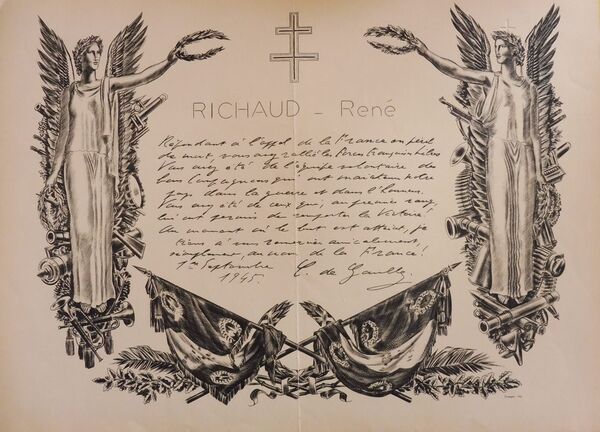 RICHAUD - René
Répondant à l'appel de la France en péril
de mort, vous avez rallié les Forces françaises libres.
Vous avez été de l'équipe volontaire des
bons Compagnons qui ont maintenu notre
pays dans la guerre et dans l'honneur.
Vous avez été de ceux qui, au premier rang,
lui ont permis de remporter la Victoire!
Au moment où le but est atteint, je
tiens à vous remercier amicalement,
simplement, au nom de la France!
1er Septembre
1945. C. de Gaulle.